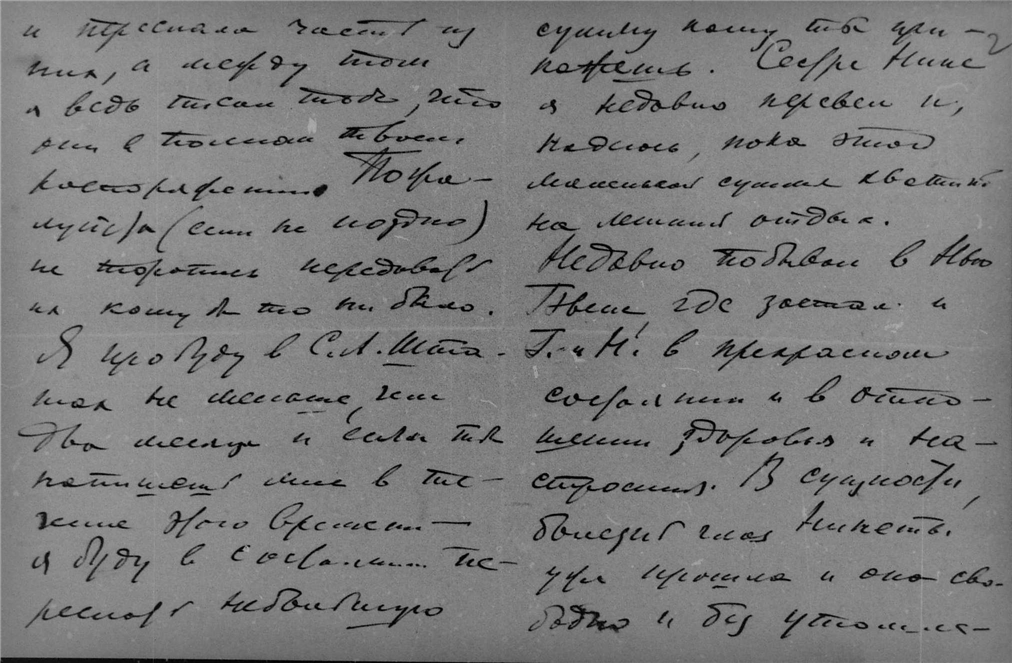 и переслала часть из
них, а между тем
я ведь писал тебе, что
они в полном твоем
распоряжении. Пожа-
луйста (если не поздно)
не торопись передавать
их кому бы то ни было.
Я пробуду в С.А. Штa-
тах не меньше, чем
два месяца и если ты
напишешь мне в те-
чение этого времени —
я буду в состоянии пе-
реслать небольшую
2
сумму кому ты при-
кажешь. Сестре Нине
я недавно перевел и,
надеюсь, пока этой
маленькой суммы хватит
на летний отдых.
Недавно побывал в Нью
Гавене, где застал и
Г. и Н. в прекрасном
состоянии и в отно-
шении здоровья и на-
строения. В сущности,
болезнь глаз Нинеты
уже прошла и она сво-
бодно и без утомле-